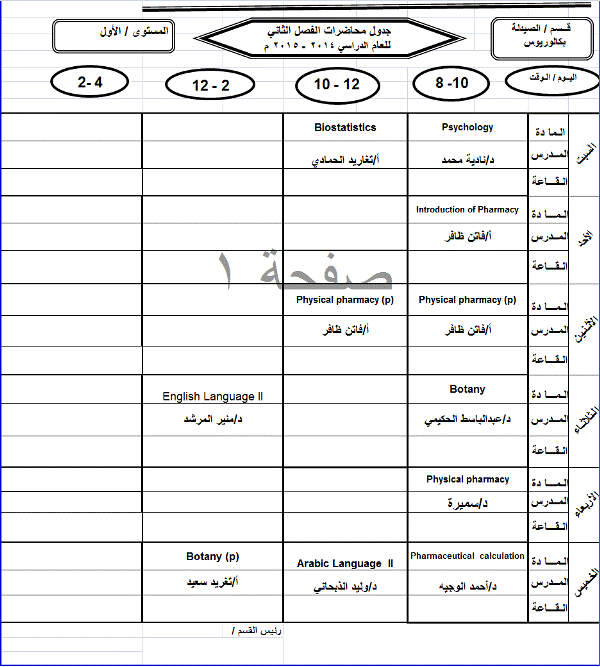 قسم / الصيدلة
بكالوريوس
جدول محاضرات الفصل الثاني
للعام الدراسي ٢٠١٤ - ٢٠١٥ م
المستوى / الأول
اليوم / الوقت
8 -10
10 - 12
12 - 2
2- 4
السبت
المادة
Psychology
Biostatistics
المدرس
د/نادية محمد
أ/تغاريد الحمادي
القاعة
الأحد
المادة
Introduction of Pharmacy
المدرس
أ/فاتن ظافر
القاعة
صفحة ١
الأثنين
المادة
Physical pharmacy (p)
Physical pharmacy (p)
المدرس
أ/فاتن ظافر
أ/فاتن ظافر
القاعة
الثلاثاء
المادة
Botany
English Language II
المدرس
د/عبدالباسط الحكيمي
د/منير المرشد
القاعة
الأربعاء
المادة
Physical pharmacy
المدرس
د/سميرة
القاعة
الخميس
المادة
Pharmaceutical calculation
Arabic Language II
Botany (p)
المدرس
د/أحمد الوجيه
د/وليد الذبحاني
أ/تغريد سعيد
القاعة
رئيس القسم /